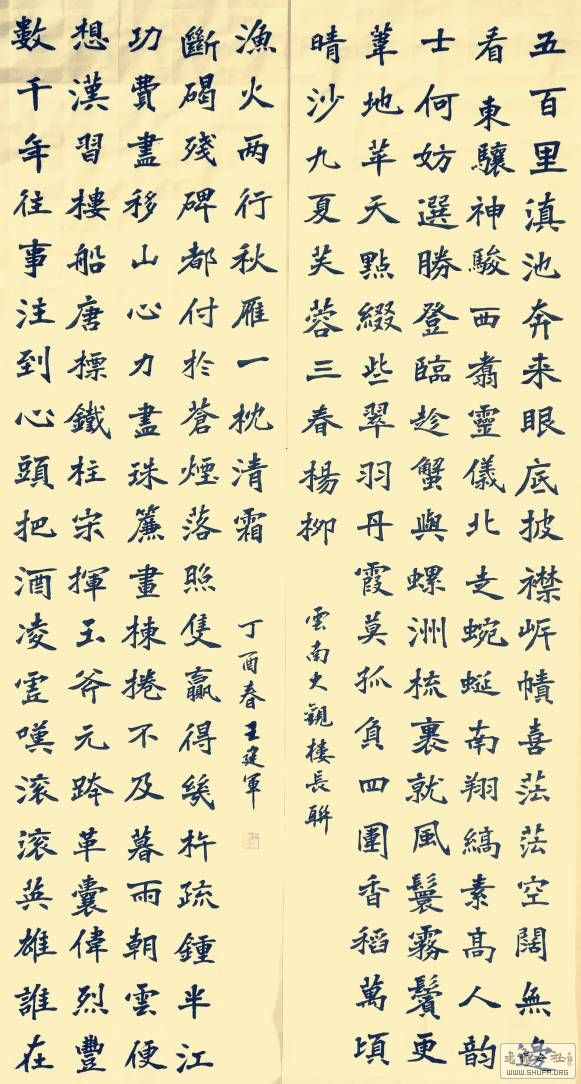 五百里滇池奔来眼底披襟岸幘喜茫茫空闊無邊
看東驤神駿西翥靈儀北走蜿蜒南翔縞素高人韵
士何妨選勝登臨趁蟹與螺洲梳裹就風鬟霧鬢更
葦地苹天點綴些翠羽丹霞莫孤負四圍香稻萬頃
晴沙九夏芙蓉三春楊柳
雲南大觀樓長聯
數千年往事注到心頭把酒凌虛嘆滚滚英雄誰在
想漢習樓船唐標鐵柱宋揮玉斧元跨革囊偉烈豐
功費盡移山心力盡珠簾畫棟捲不及暮雨朝雲便
斷碣殘碑都付於蒼煙落照隻贏得幾杵疏鍾半江
漁火两行秋雁一枕清霜
丁酉春王建軍
WWW.SHUFA.ORG